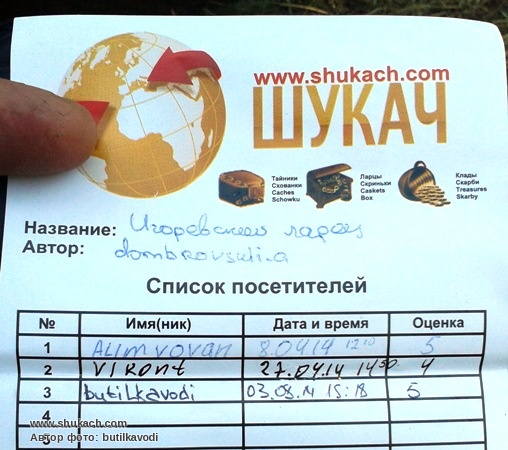 www.shukach.com
ШУКАЧ
Тайники
Схованки
Caches
Schowku
Ларцы
Скриньки
Caskets
Box
Клады
Скарби
Treasures
Skarby
Название: Игоревский ларец
Автор: dombrovskii.a
Список посетителей
№ Имя(ник) Дата и время Оценка
1 ALIMVOVAN 8.04.14 12 10 5
2 VIRONT 27.04.14 14 50 4
3 butilkavodi 03.08.14 15:18 5
4
5
www.shukach.com
Автор фото: butilkavodi